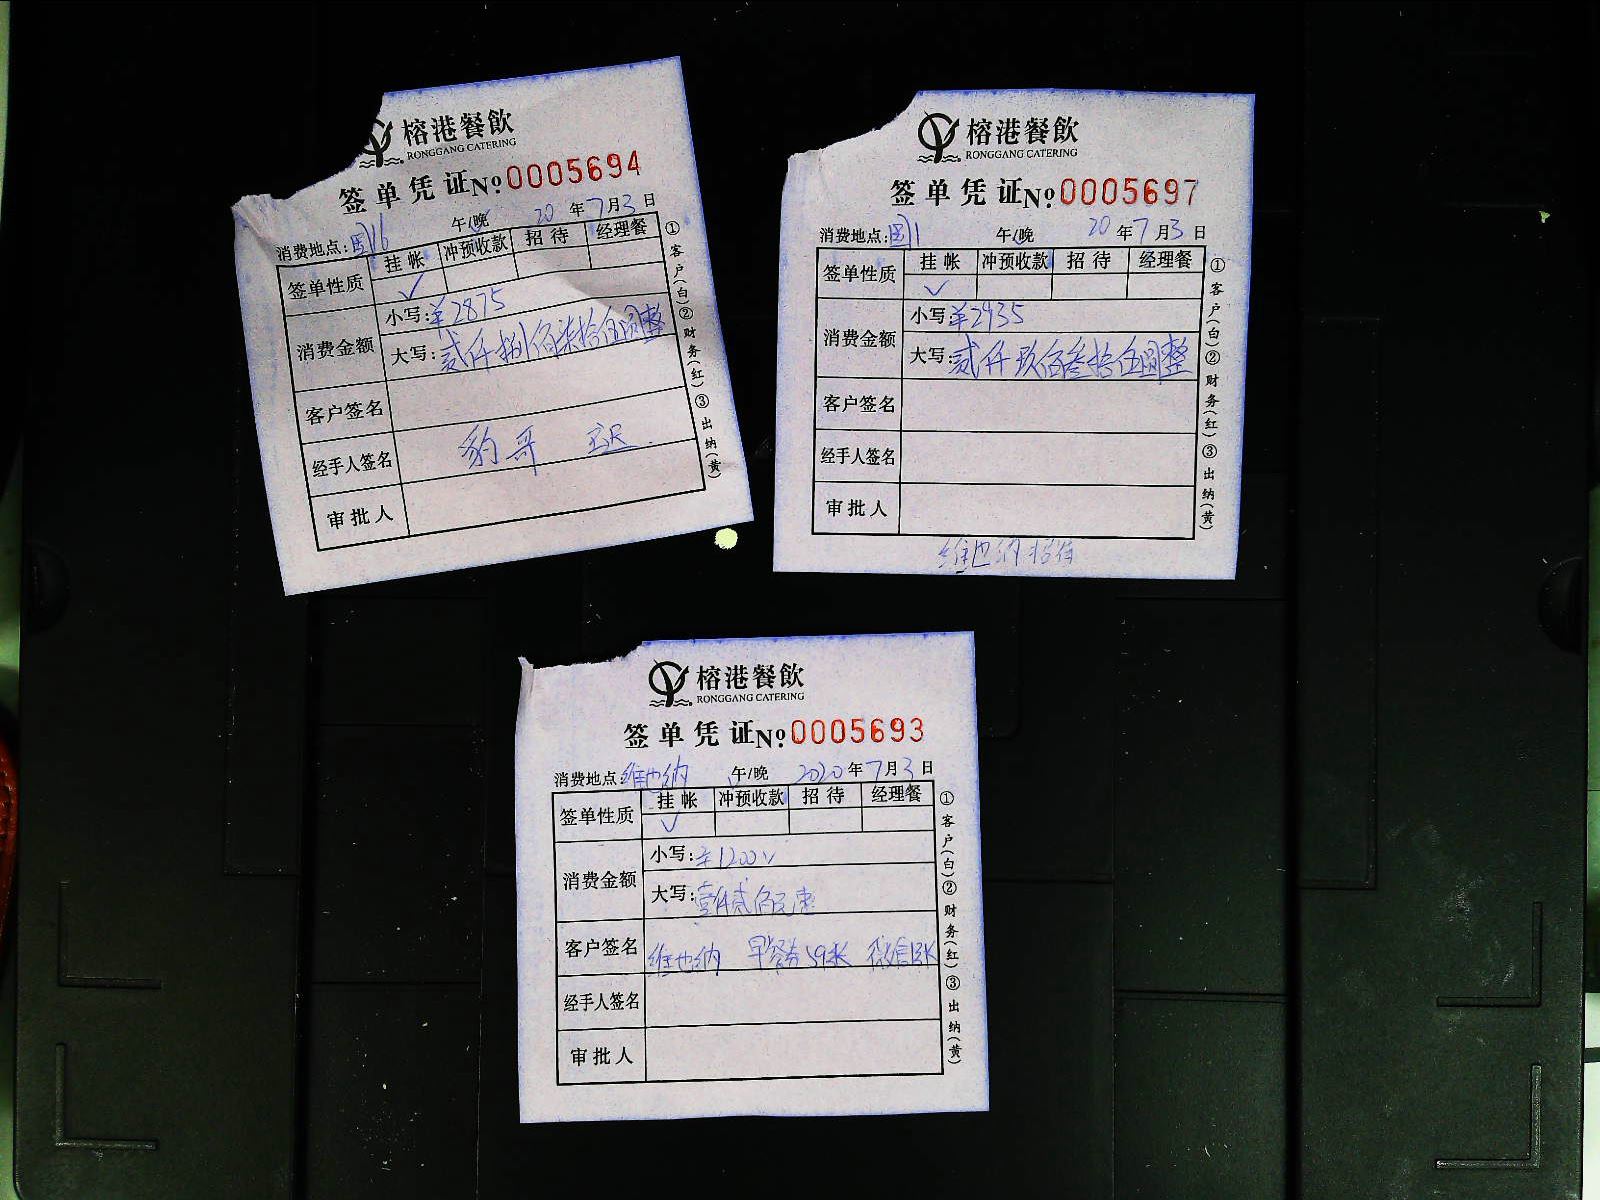 榕港餐飲
RONGGANG CATERING
签单凭证 №0005694
消费地点: 国16 午/晚 20年7月3日
签单性质 挂帐 冲预收款 招待 经理餐
✓
消费金额 小写: ¥2875
大写: 贰仟捌佰柒拾伍圆整
客户签名
经手人签名 豹哥
审批人
①客户(白)②财务(红)③出纳(黄)
榕港餐飲
RONGGANG CATERING
签单凭证 №0005697
消费地点: 国1 午/晚 20年7月3日
签单性质 挂帐 冲预收款 招待 经理餐
✓
消费金额 小写: ¥2935
大写: 贰仟玖佰叁拾伍圆整
客户签名
经手人签名
审批人
①客户(白)②财务(红)③出纳(黄)
维也纳招待
榕港餐飲
RONGGANG CATERING
签单凭证 №0005693
消费地点: 维也纳 午/晚 2020年7月3日
签单性质 挂帐 冲预收款 招待 经理餐
✓
消费金额 小写: ¥1200
大写: 壹仟贰佰元
客户签名 维也纳 早餐券59张 微信1张
经手人签名
审批人
①客户(白)②财务(红)③出纳(黄)